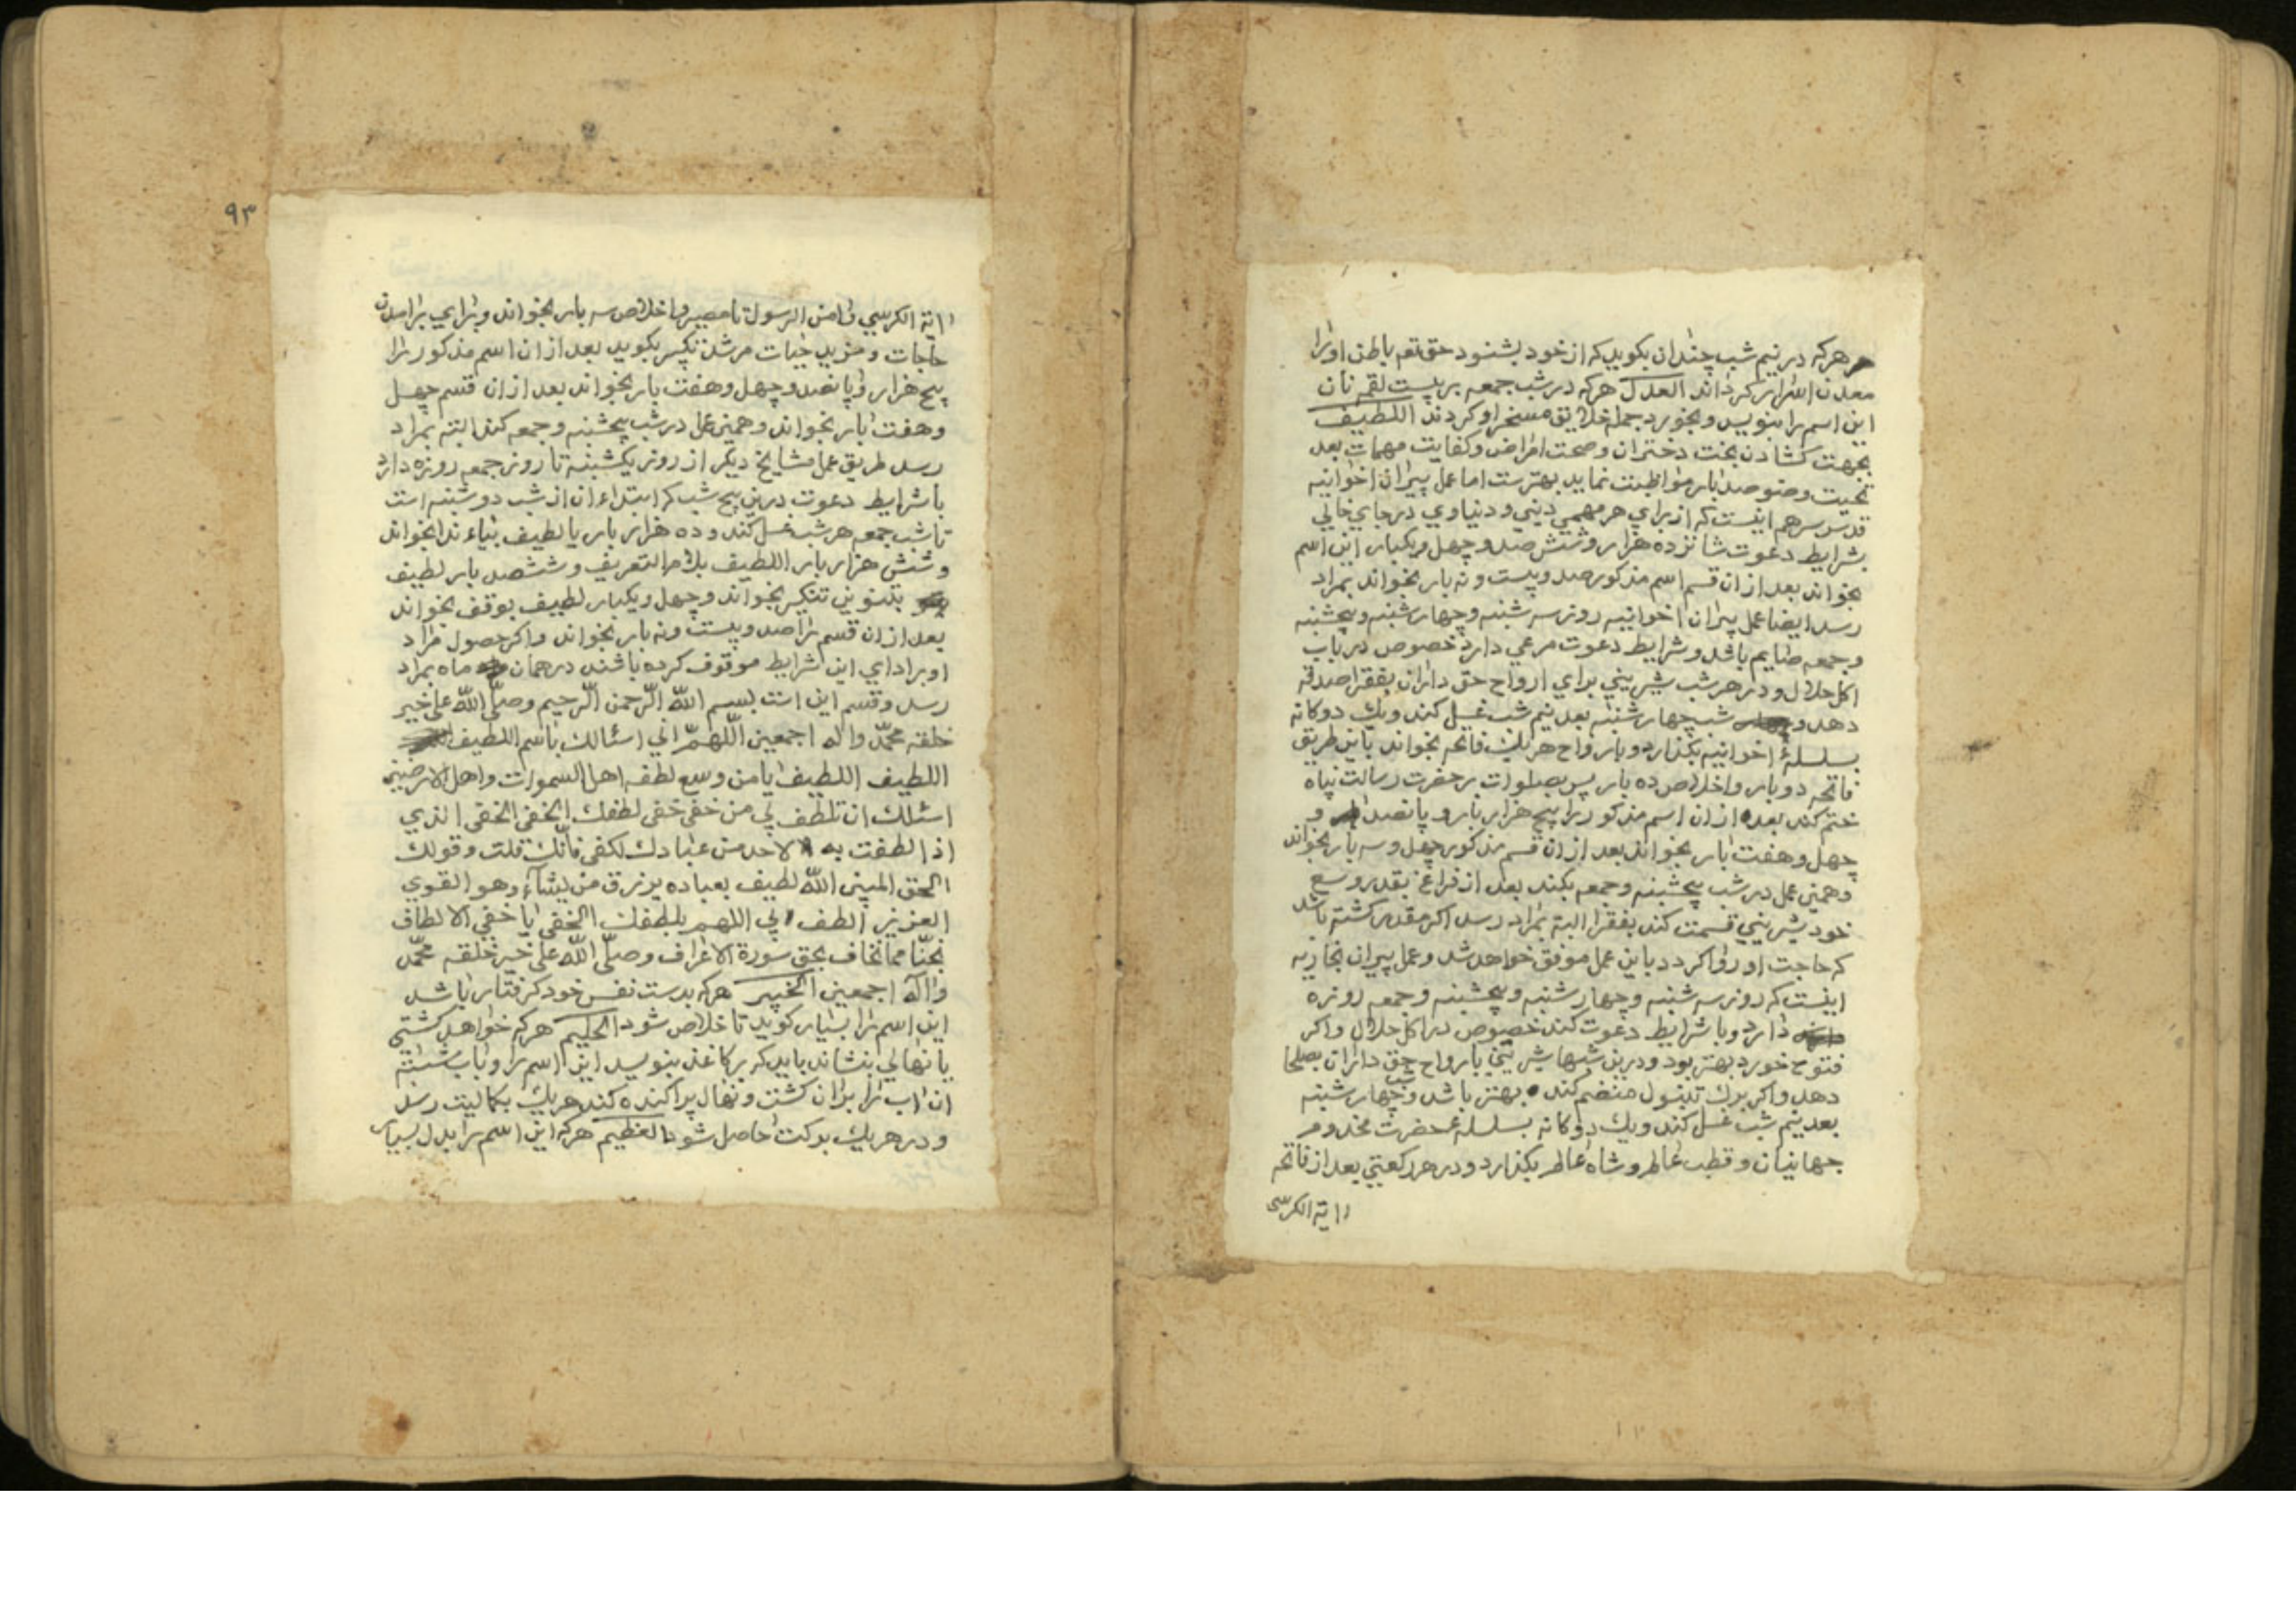 هرکه در نیم شب چندان بکوید که از خود بشنود حق تعم باطن او را
معدن اسرار کرداند العدل هرکه در شب جمعه بر بیست لقمه نان
این اسم را بنویسد و بخورد جمله خلایق مسخر او کردند اللطیف
بجهت کشادن بخت دختران و صحت امراض و کفایت مهمات بعد
تحیت وضو صد بار مواظبت نماید بهترست اما عمل پیران اخوانیه
قدس سرهم اینست که از برای هر مهمی دینی و دنیاوی در جای خالی
بشرایط دعوت شانزده هزار و شش صد و چهل و یکبار این اسم
بخواند بعد از ان قسم اسم مذکور صد و بیست و نه بار بخواند بمراد
رسد ایضا عمل پیران اخوانیه روز سه شنبه و چهارشنبه و پنجشنبه
و جمعه صایم باشد و شرایط دعوت مرعی دارد خصوص در باب
اکل حلال و در هر شب شیرینی برای ارواح حق داران بفقرا صدقه
دهد و شب چهارشنبه بعد نیم شب غسل کند و یک دوکانه
بسلسلۀ اخوانیه بکذارد و بارواح هریک فاتحه بخواند باین طریق
فاتحه دو بار و اخلاص ده بار پس بصلوات بر حضرت رسالت پناه
ختم کند بعد از ان اسم مذکور را پنج هزار بار و پانصد و
چهل و هفت بار بخواند بعد از ان قسم مذکور چهل و سه بار بخواند
و همین عمل در شب پنجشنبه و جمعه بکند بعد از فراغ بقدر وسع
خود شیرینی قسمت کند بفقرا البته بمراد رسد اکر مقدر کشته باشد
که حاجت او روا کردد باین عمل موفق خواهد شد و عمل پیران بخاریه
اینست که روز سه شنبه و چهارشنبه و پنجشنبه و جمعه روزه
دارد و با شرایط دعوت کند خصوص در اکل حلال و اکر
فتوح خورد بهتر بود و درین شبها شیرینی بارواح حق داران بصلحا
دهد و اکر برک تنبول منضم کند بهتر باشد و شب چهارشنبه
بعد نیم شب غسل کند و یک دوکانه بسلسله حضرت مخدوم
جهانیان و قطب عالم و شاه عالم بکذارد و در هر رکعتی بعد از فاتحه
اایة الکرسی
۹۳
اایة الکرسی و امن الرسول تا مصیر و اخلاص سه بار بخواند و برای برامدن
حاجات و مزید حیات مرشد تکبیر بکوید بعد از ان اسم مذکور را
پنج هزار و پانصد و چهل و هفت بار بخواند بعد از ان قسم چهل
و هفت بار بخواند و همین عمل در شب پنجشنبه و جمعه کند البته بمراد
رسد طریق عمل مشایخ دیکر از روز یکشنبه تا روز جمعه روزه دارد
با شرایط دعوت درین پنج شب که ابتداء ان از شب دوشنبه است
تا شب جمعه هر شب غسل کند و ده هزار بار یا لطیف بیاء ندا بخواند
و شش هزار بار اللطیف بلام التعریف و ششصد بار لطیف
بتنوین تنکیر بخواند و چهل و یکبار لطیف بوقف بخواند
بعد از ان قسم را صد و بیست و نه بار بخواند و اکر حصول مراد
او برادای این شرایط موقوف کرده باشند در همان ماه بمراد
رسد و قسم این است بسم الله الرحمن الرحیم وصلی الله علی خیر
خلقه محمد واله اجمعین اللهم انی اسئالک باسم اللطیف
اللطیف اللطیف یا من وسع لطفه اهل السموات واهل الارضین
اسئلک ان تلطف لی من خفی خفی لطفک الخفی الخفی الذی
اذا لطفت به لاحد من عبادک لکفی فانک قلت وقولک
الحق المبین الله لطیف بعباده یرزق من یشآء وهو القوی
العزیز الطف لی اللهم بلطفک الخفی یا خفی الالطاف
نجنا مما نخاف بحق سورة الاعراف وصلی الله علی خیر خلقه محمد
واله اجمعین الخبیر هرکه بدست نفس خود کرفتار باشد
این اسم را بسیار کوید تا خلاص شود الحلیم هرکه خواهد کشتی
یا نهالی بنشاند باید که بر کاغذ بنویسد این اسم را و باب بشسته
ان اب را بران کشت و نهال پراکنده کند هریک بکمالیت رسد
و در هریک برکت حاصل شود العظیم هرکه این اسم را بدل بسیار